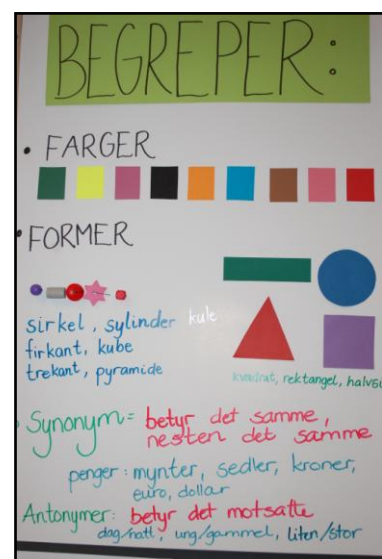 BEGREPER:
• FARGER
• FORMER
sirkel, sylinder kule
firkant, kube
trekant, pyramide
kvadrat, rektangel,
• Synonym = betyr det samme,
nesten det samme
penger: mynter, sedler, kroner,
euro, dollar
Antonymer: betyr det motsatte
dag/natt, ung/gammel, liten/stor